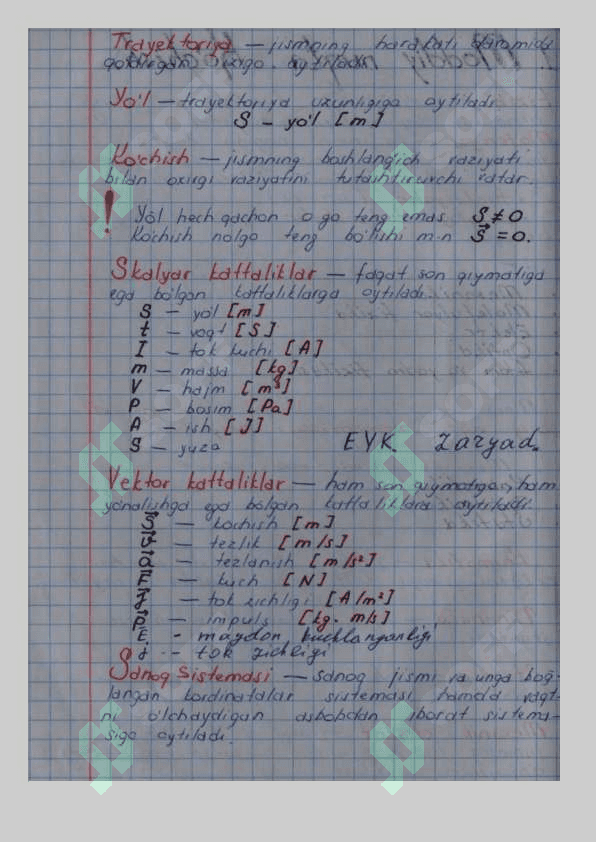 Trayektoriya — jismning harakati davomida
qoldirgan iziga aytiladi.
Yo'l — trayektoriya uzunligiga aytiladi.
S — yo'l [m]
Ko'chish — jismning boshlang'ich vaziyati
bilan oxirgi vaziyatini tutashtiruvchi vatar.
! Yo'l hech qachon 0 ga teng emas S ≠ 0
Ko'chish nolga teng bo'lishi m-n S⃗ = 0.
Skalyar kattaliklar — faqat son qiymatiga
ega bo'lgan kattaliklarga aytiladi.
S — yo'l [m]
t — vaqt [S]
I — tok kuchi [A]
m — massa [kg]
V — hajm [m³]
P — bosim [Pa]
A — ish [J]
S — yuza EYK. Zaryad.
Vektor kattaliklar — ham son qiymatiga, ham
yo'nalishga ega bo'lgan kattaliklara aytiladi.
S⃗ — kochish [m]
v⃗ — tezlik [m/s]
a⃗ — tezlanish [m/s²]
F⃗ — kuch [N]
j⃗ — tok zichligi [A/m²]
P⃗ — impuls [kg·m/s]
E. - maydon kuchlanganligi
j -- tok zichligi
Sanoq sistemasi — sanoq jismi va unga bog'-
langan kordinatalar sistemasi hamda vaqt-
ni o'lchaydigan asbobdan iborat sistema-
siga aytiladi.